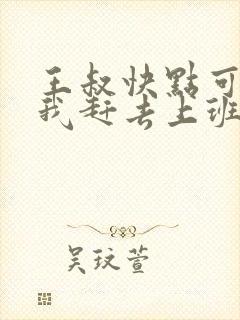 王叔快點可
我赶去上班
吴玟萱